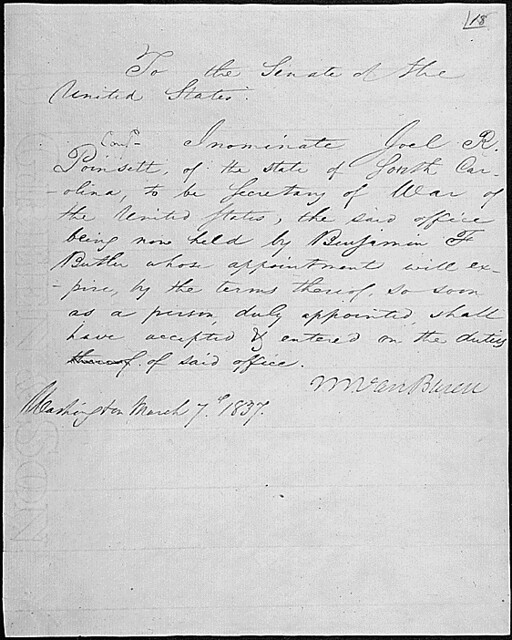 18
To the Senate of the
United States.
Conf. I nominate Joel R.
Poinsett, of the state of South Car-
-olina, to be Secretary of War of
the United States, the said office
being now held by Benjamin F
Butler whose appointment will ex-
-pire, by the terms thereof, so soon
as a person, duly appointed, shall
have accepted & entered on the duties
thereof of said office.
M Van Buren
Washington March 7th 1837.